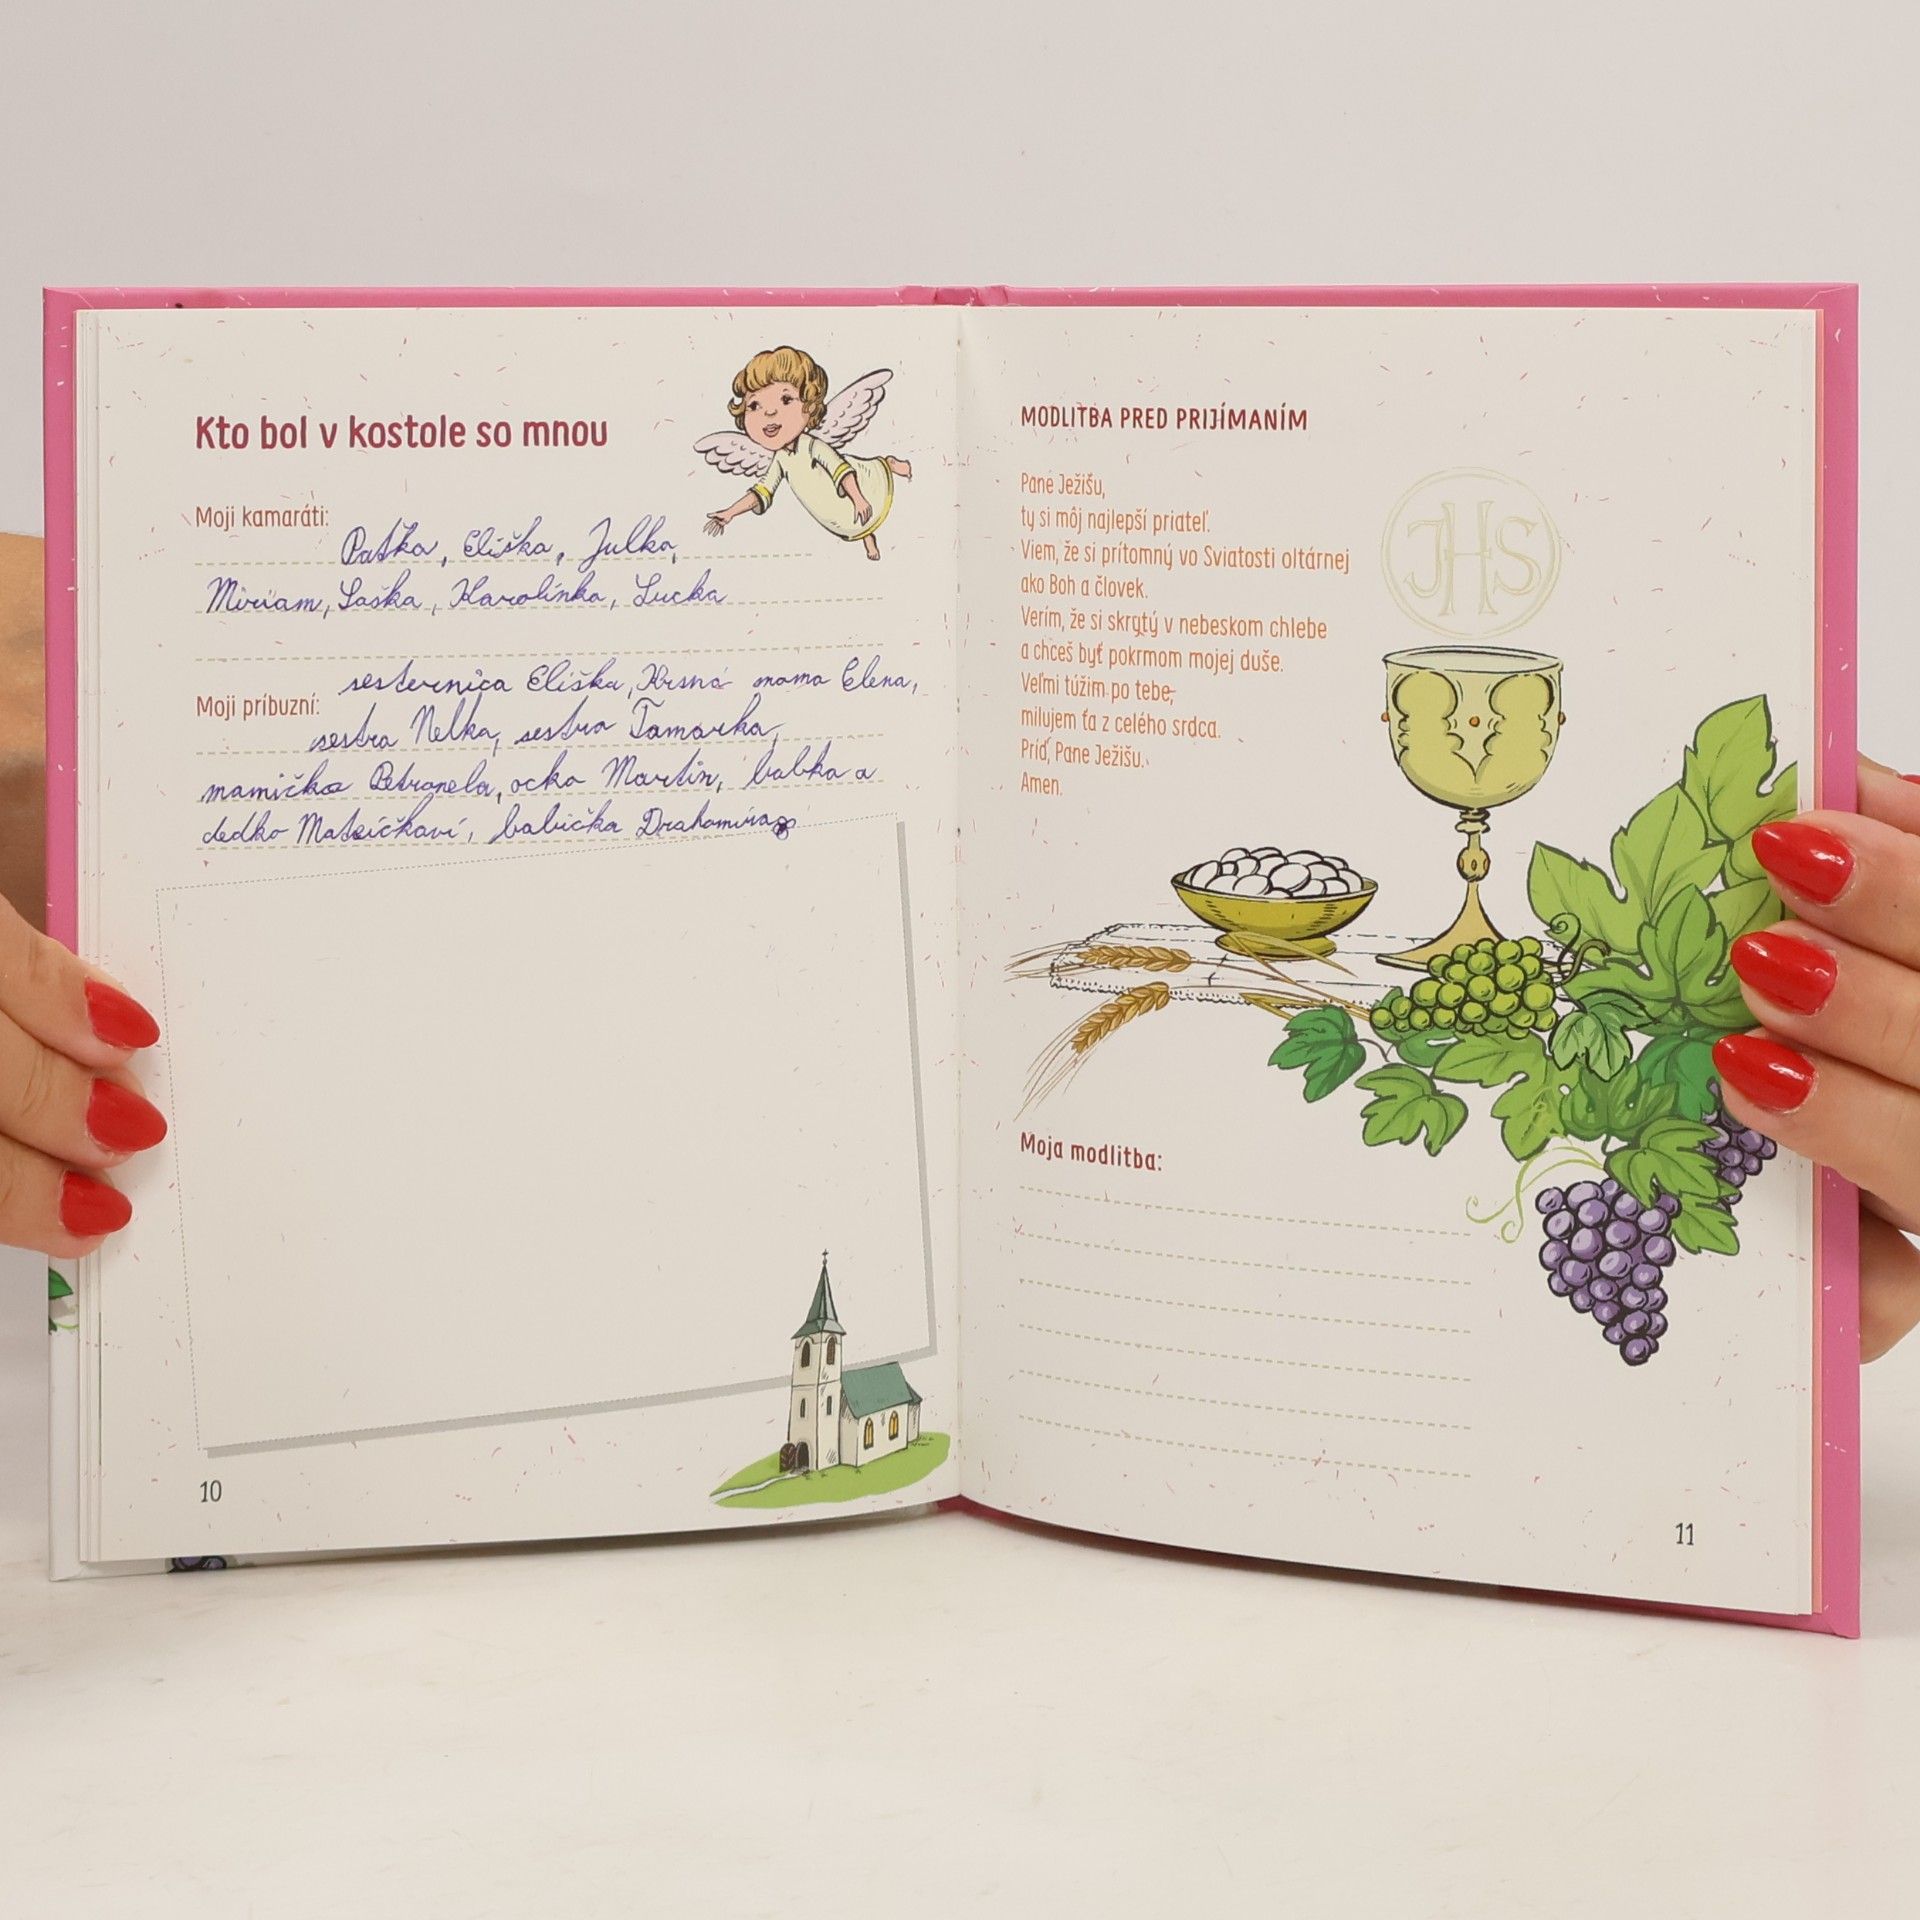 Kto bol v kostole so mnou
Moji kamaráti:
Paťka, Eliška, Julka,
Miriam, Saška, Karolínka, Lucka
sesternica Eliška, Krsná mama Elena,
Moji príbuzní:
sestra Nelka, sestra Tamarka,
mamička Petronela, ocko Martin, babka a
dedko Matejíčkoví, babička Drahomíra
10
MODLITBA PRED PRIJÍMANÍM
Pane Ježišu,
ty si môj najlepší priateľ.
Viem, že si prítomný vo Sviatosti oltárnej
ako Boh a človek.
Verím, že si skrytý v nebeskom chlebe
a chceš byť pokrmom mojej duše.
Veľmi túžim po tebe,
milujem ťa z celého srdca.
Príď, Pane Ježišu.
Amen.
JHS
Moja modlitba:
11